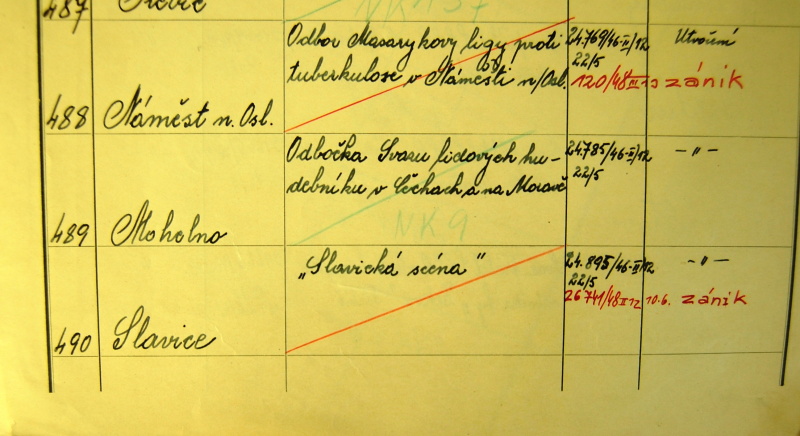 487
NK 57
Odbor Masarykovy ligy proti
tuberkulose v Náměsti n/Osl.
24.769/46-II/12
22/5
Utvoření
120/48 III 13 zánik
488 Náměst n. Osl.
Odbočka Svazu lidových hu-
debníku v Čechách a na Moravě
24.785/46-II/12
22/5
- " -
NK 9
489 Mohelno
„Slavická scéna"
24.895/46-II/12
22/5
- " -
26741/48 II 12 10.6. zánik
490 Slavice